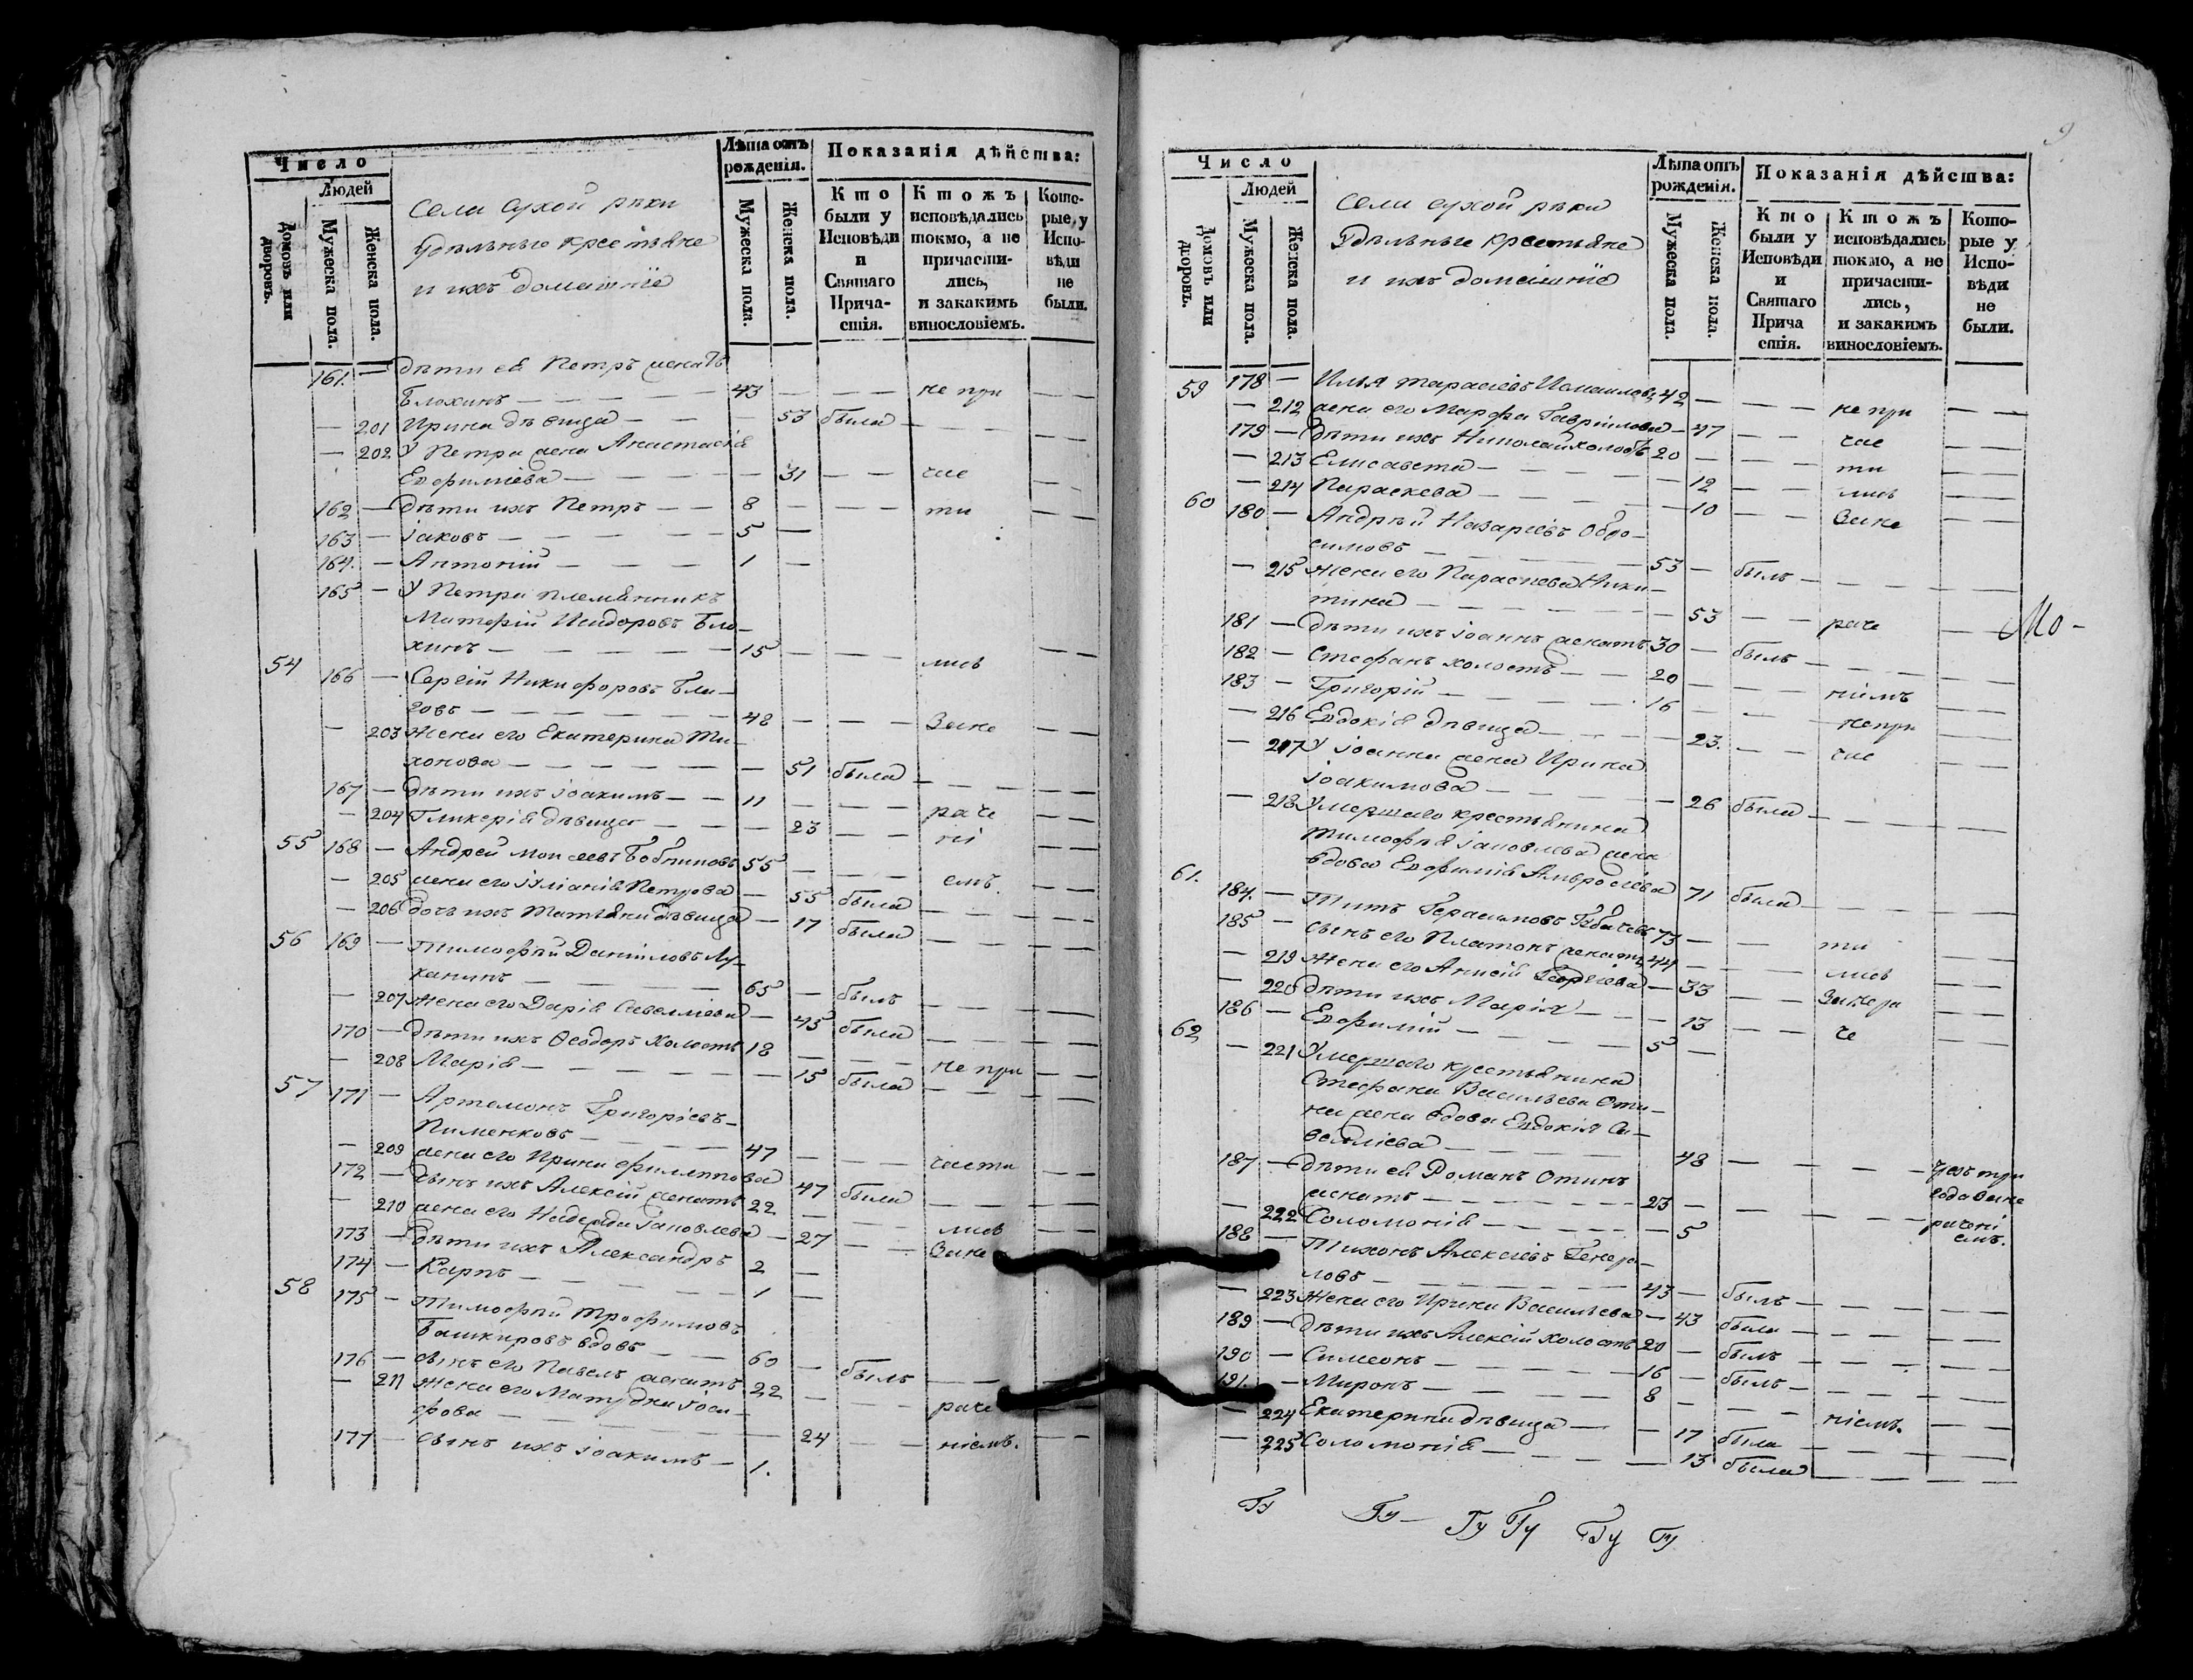 Число
Людей
Домовъ или дворовъ.
Мужеска пола.
Женска пола.
Села сухой рѣки
удѣльныо крестьяне
и ихъ домашніе
Лѣта отъ рожденія.
Мужеска пола.
Женска пола.
Показанія дѣйства:
Кто были у Исповѣди и Святаго Причастія.
Ктожъ исповѣдались токмо, а не причастились, и закакимъ винословіемъ.
Которые у Исповѣди не были.
161. — дѣти ея Петръ женатъ
Блохинъ — 43 — — — не при — —
— 201 Ирина дѣвица — — — 53 была — — —
— 202 У Петра жена Анастасія
Евфиміева — — 31 — — час — —
162 — дѣти ихъ Петръ — — 8 — — — ти — —
163 — Іаковъ — 5 —
164. — Антоній — 1 —
165 — У Петра племянникъ
Матфій Исидоровъ Бло-
хинъ — 15 — — — лись — —
54 166 — Сергій Никифоровъ Бли-
зовъ — 48 — — — Зане — —
— 203 Жена его Екатерина Ти-
хонова — — 51 была — — —
167 — дѣти ихъ Іоакимъ — — 11 — — — раче — —
— 204 Гликерія дѣвица — — 23 — — ні — —
55 168 — Андрей Моисеевъ Бобпиновъ 55 — — — емъ. — —
— 205 жена его Іуліанія Петрова — 55 была — — —
— 206 дочь ихъ Татьяна дѣвица — 17 была — — —
56 169 — Тимофѣй Даніиловъ Лу-
канинъ — 65 — былъ — — —
— 207 Жена его Дарія Савелліева — 45 была — — —
170 — дѣти ихъ Ѳеодоръ холостъ 18 — — — не при — —
— 208 Марія — — 15 была — — —
57 171 — Артамонъ Григоріевъ
Пименковъ — 47 — — — части — —
— 209 жена его Ирина Филиппова 47 была — — —
172 — сынъ ихъ Алексій женатъ 22 — — — лись — —
— 210 жена его Надежда Іаковлева — 27 — — Зане
173 — дѣти ихъ Александръ 2 —
174 — Карпъ — 1 —
58 175 — Тимофѣй Трофимовъ
Башкировъ вдовъ — 60 — былъ — — —
176 — сынъ его Павелъ женатъ 22 — — — раче
— 211 Жена его Матрона Іоси-
фова — — 24 — — ніемъ. — —
177 — сынъ ихъ Іоакимъ — 1.
9
Число
Людей
Домовъ или дворовъ.
Мужеска пола.
Женска пола.
Села сухой рѣки
Удѣльные крестьяне
и ихъ домашніе
Лѣта отъ рожденія.
Мужеска пола.
Женска пола.
Показанія дѣйства:
Кто были у Исповѣди и Святаго Прича стія.
Ктожъ исповѣдались токмо, а не причастились, и закакимъ винословіемъ.
Которые у Исповѣди не были.
59 178 — Илья Тарасіевъ Исмаиловъ 42 — — — не при — —
— 212 жена его Марфа Гавріилова — 47 — — час — —
179 — дѣти ихъ Николай холостъ 20 — — — ти — —
— 213 Елисавета — — 12 — — лись — —
— 214 Параскева — — 10 — — Зане — —
60 180 — Андрѣй Назаріевъ Обро-
симовъ — 53 — былъ — — —
— 215 Жена его Параскева Ники-
тина — — 53 — — раче — —
Мо-
181 — дѣти ихъ Іоаннъ женатъ 30 — былъ — — —
182 — Стефанъ холостъ — — 20 — — — ніемъ — —
183 — Григорій — 16 — — — не при — —
— 216 Евдокія дѣвица — — 23. — — час — —
— 217 У Іоанна жена Ирина
Іоакимова — — 26 была — — —
— 218 Умершаго крестьянина
Тимофѣя Іаковлева жена
вдова Евфимія Амвросіева 71 была — — —
61. 184. — Титъ Герасимовъ 73 — — ти — —
185 — сынъ его Платонъ женатъ 44 — — — лись — —
— 219 Жена его Анисія Георгіева — 33 — — Занера — —
— 220 дѣти ихъ Марія — — 13 — — че — —
186 — Евфимій — 5 —
62 — 221 Умершаго крестьянина
Стефана Васильева Оти-
на жена вдова Евдокія Са-
велліева — 48 — — — Чрезъ три
187 — дѣти ея Романъ Отинъ
женатъ — 23 — — — года Зане
— 222 Соломонія — — 5 рачені
емъ.
188 — Тихонъ Алексіевъ Генера-
ловъ — 43 — былъ — — —
— 223 Жена его Ирина Васильева — 43 была — — —
189 — дѣти ихъ Алексій холостъ 20 — былъ — — —
190 — Симеонъ — 16 — былъ — — —
191. — Миронъ — 8 — — — ніемъ. — —
— 224 Екатерина дѣвица — — 17 была — — —
— 225 Соломонія — — 13 была — — —
Гу Гу — Гу Гу Гу Гу